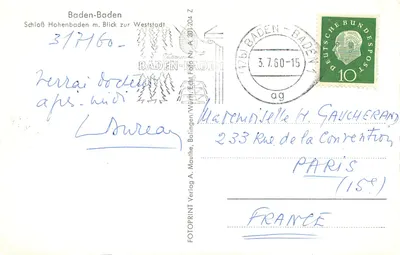 Baden-Baden
Schloß Hohenbaden m. Blick zur Weststadt
3/7/60-
verrai docteur
après-midi
FOTOPRINT Verlag A. Mauthe, Balingen/Württ. Echt Foto Nr. A 301204 Z
BADEN-BADEN
(17b) BADEN-BADEN 1
3.7.60-15
ag
DEUTSCHE BUNDESPOST
10
Mademoiselle H. GAUCHERAND
233 Rue de la Convention
PARIS
(15e)
FRANCE